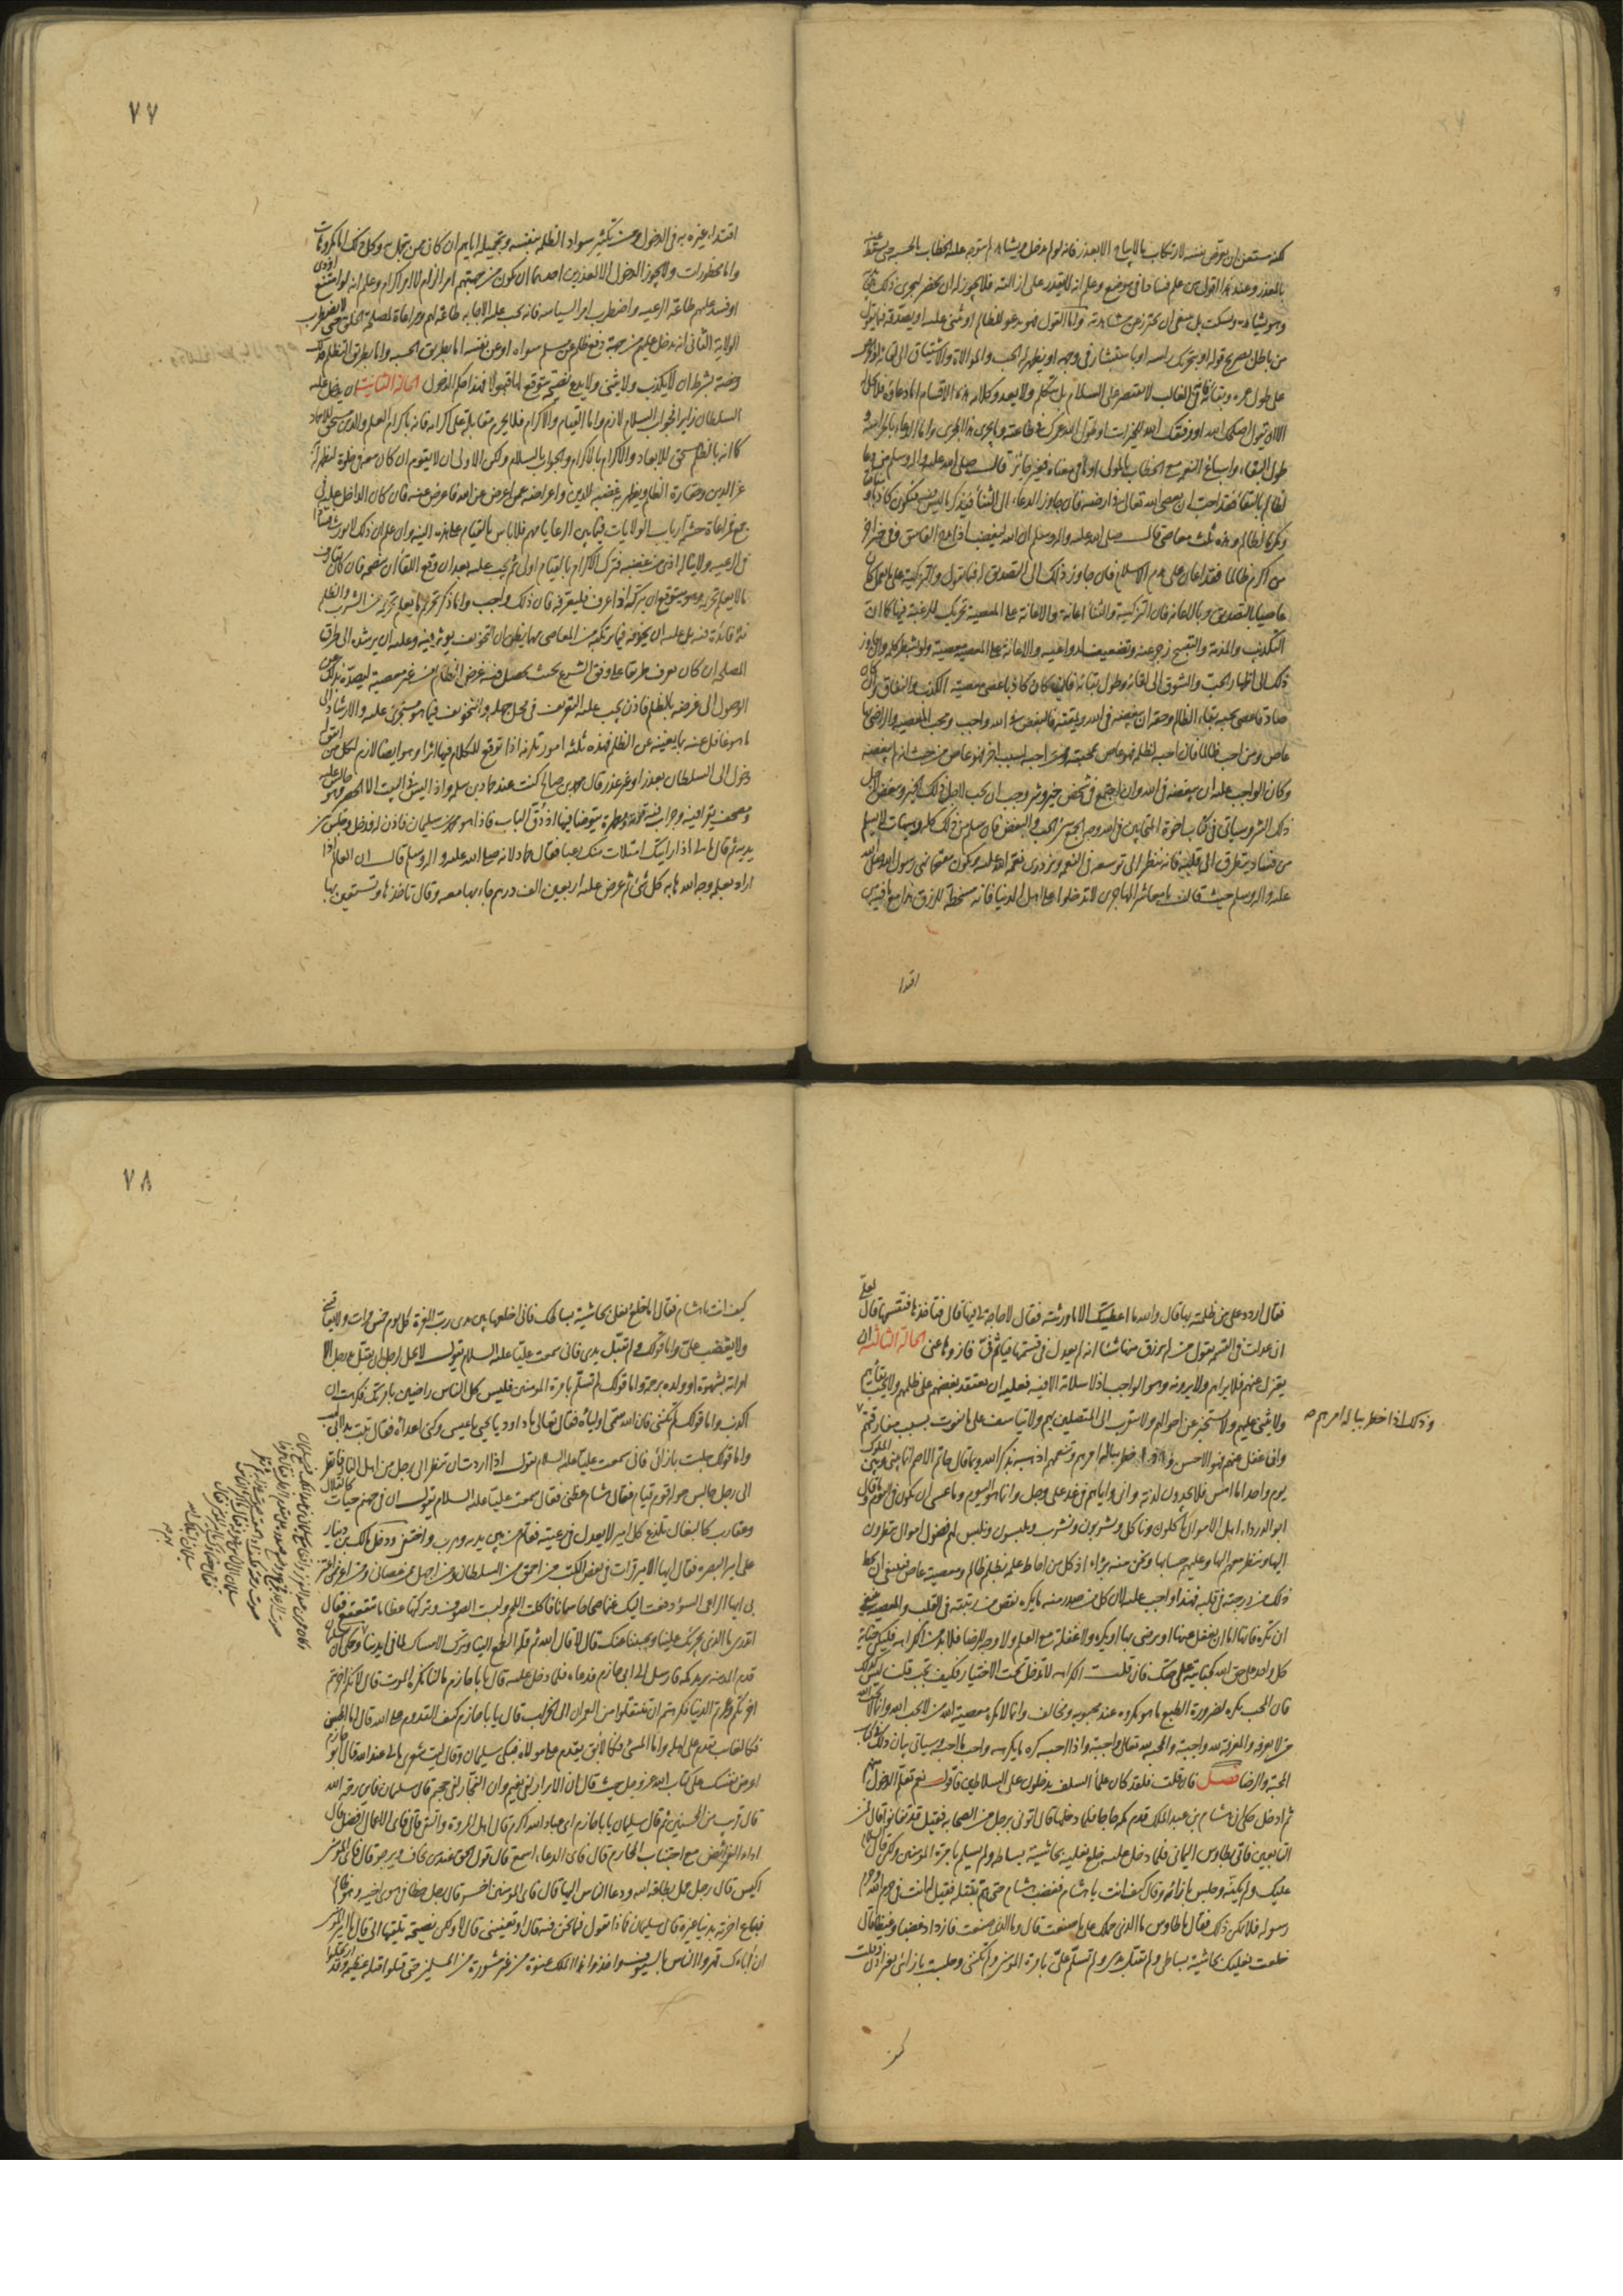 لكنه مستغن ان يعرض نفسه لارتكاب ما لا يباح الا بعذر فانه لو لم يدخل ولم يشاهد لم يتوجه عليه الخطاب بالحسبة حتى يسقط عنه
بالعذر وعند هذا اقول من علم فسادا في موضع وعلم انه لا يقدر على ازالته فلا يجوز له ان يحضر ليجري ذلك بين يديه
وهو يشاهده ويسكت بل ينبغي ان يحترز عن مشاهدته واما القول فهو ان يدعو للظالم او يثني عليه او يصدقه فيما يقول
من باطل بصريح قوله او بتحريك راسه او باستبشار في وجهه او يظهر له الحب والموالاة والاشتياق الى لقائه والحرص
على طول عمره وبقائه فانه في الغالب لا يقتصر على السلام بل يتكلم ولا يعدو كلامه هذه الاقسام اما دعاؤه فلا يحل
الا ان يقول اصلحك الله او وفقك الله للخيرات او طول الله عمرك في طاعته وما يجري هذا المجرى واما الدعاء بالحراسة و
طول البقاء واسباغ النعمة مع الخطاب بالمولى او ما في معناه فغير جائز قال صلى الله عليه واله وسلم من دعا
لظالم بالبقاء فقد احب ان يعصى الله تعالى في ارضه فان جاوز الدعاء الى الثناء فيذكر ما ليس فيه فيكون كاذبا و
مكرما لظالم وهذه ثلث معاصي قال صلى الله عليه واله وسلم ان الله ليغضب اذا مدح الفاسق وفي خبر اخر
من اكرم ظالما فقد اعان على هدم الاسلام فان جاوز ذلك الى التصديق له فيما يقول والتزكية على ما يعمل كان
عاصيا بالتصديق وبالاعانة فان التزكية والثناء اعانة والاعانة على المعصية تحريك للرغبة فيها كما ان
التكذيب والمذمة والتقبيح زجر عنه وتضعيف لدواعيه والاعانة على المعصية معصية ولو بشطر كلمة وان جاوز
ذلك الى اظهار الحب والشوق الى لقائه وطول بقائه فان كان كاذبا عصى معصية الكذب والنفاق وان كان
صادقا عصى بحبه بقاء الظالم وحقه ان يبغضه في الله ويمقته فالبغض في الله واجب ومحب المعصية والراضي بها
عاص ومن احب ظالما فان احبه لظلمه فهو عاص بمحبته وان احبه لسبب اخر فهو عاص من حيث انه لم يبغضه
وكان الواجب عليه ان يبغضه في الله وان اجتمع في شخص خير وشر وجب ان يحب لاجل ذلك الخير ويبغض لاجل
ذلك الشر وسياتي في كتاب اخوة المتحابين في الله وجه الجمع بين الحب والبغض فان سلم من ذلك كله وهيهات لا يسلم
من فساد يتطرق الى قلبه فانه ينظر الى توسعه في النعمة ويزدري نعمة الله عليه ويكون مقتحما نهي رسول الله صلى الله
عليه واله وسلم حيث قال يا معاشر المهاجرين لا تدخلوا على اهل الدنيا فانه مسخطة للرزق هذا مع ما فيه من
اقتدا
٧٧
اقتداء غيره به في الدخول ومن تكثير سواد الظلمة بنفسه وتجميله اياهم ان كان ممن يتجمل به وكل ذلك اما مكروهات
واما محظورات ولا يجوز الدخول الا لعذرين احدهما ان يكون من جهتهم امر الزام لا امر اكرام وعلم انه لو امتنع اوذي
او فسد عليهم طاعة الرعية واضطرب امر السياسة فانه يجب عليه الاجابة لا طاعة لهم ومراعاة لمصلحة الخلق حتى لا يضطرب
الولاية الثاني ان يدخل عليهم من جهة دفع ظلم عن مسلم سواه او عن نفسه اما بطريق الحسبة واما بطريق التظلم فذلك
رخصة بشرط ان لا يكذب ولا يثني ولا يدع نصيحة يتوقع لها قبولا فهذا حكم الدخول الحالة الثانية ان يدخل عليه
السلطان زايرا فجواب السلام لازم واما القيام والاكرام فلا يحرم مقابلة على اكرامه فانه باكرام العلم والدين مستحق للاحماد
كما انه بالظلم مستحق للابعاد والاكرام بالاكرام والجواب بالسلام ولكن الاولى ان لا يقوم ان كان معه في خلوة ليظهر له
عز الدين وحقارة الظلم ويظهر به غضبه للدين واعراضه عمن اعرض عن الله فاعرض عنه فان كان الداخل عليه في
جمع فمراعاة حشمة ارباب الولايات فيما بين الرعايا مهم فلا باس بالقيام على هذه النية وان علم ان ذلك لا يورث فسادا
في الرعية ولا يناله اذى من غضبه فترك الاكرام بالقيام اولى ثم يجب عليه بعد ان وقع اللقاء ان ينصحه فان كان يقارف
ما لا يعلم تحريمه وهو يتوقع ان يتركه اذا عرف فليعرفه فان ذلك واجب واما ذكر تحريم ما يعلم تحريمه من الشرب والظلم
فلا فائدة فيه بل عليه ان يخوفه فيما يرتكبه من المعاصي مهما يظن ان التخويف يؤثر فيه وعليه ان يرشده الى طرق
المصلحة ان كان يعرف طريقا على وفق الشرع بحيث يحصل فيه غرض الظالم من غير معصية ليصده بذلك عن
الوصول الى غرضه بالظلم فاذن يجب عليه التعريف في محل جهله والتخويف فيما هو مستجري عليه والارشاد الى
ما هو غافل عنه بما يغنيه عن الظلم فهذه ثلثة امور تلزمه اذا توقع للكلام فيها اثرا وهو ايضا لازم لكل من اتفق له
دخول الى السلطان بعذر او غير عذر قال محمد بن صالح كنت عند حماد بن سلمة واذا ليس في البيت الا حصير وهو جالس عليه
ومصحف يقرا فيه وجراب فيه علمه ومطهرة يتوضا فيها اذ دق الباب فاذا هو محمد بن سليمان فاذن له فدخل وجلس بين
يديه ثم قال ما لي اذا رايتك امتلات منك رعبا فقال حماد لانه صلى الله عليه واله وسلم قال ان العالم اذا
اراد بعلمه وجه الله هابه كل شئ ثم عرض عليه اربعين الف درهم جاء بها معه وقال تاخذها وتستعين بها
فقال ارددها على من ظلمته بها قال والله ما اعطيتك الا ما ورثته فقال لا حاجة لي فيها قال فتاخذها فتقسمها قال لعلي
ان عدلت في القسمة يقول من لم يرزق منها شيئا انه لم يعدل في قسمتها فياثم في فازوها عني الحالة الثالثة ان
يعتزل عنهم فلا يراهم ولا يرونه وهو الواجب اذ لا سلامة الا فيه فعليه ان يعتقد بغضهم على ظلمهم ولا يحب بقائهم
ولا يثني عليهم ولا يستخبر عن احوالهم ولا يتقرب الى المتصلين بهم ولا يتاسف على ما يفوت بسبب مفارقتهم
وذلك اذا خطر بباله امرهم صح
وان غفل عنهم فهو الاحسن واذا خطر بباله امرهم وتنعمهم فليذكر ما قال حاتم الاصم انما بيني وبين الملوك
يوم واحد اما امس فلا يجدون لذته واني واياهم في غد على وجل وانما هو اليوم وما عسى ان يكون في اليوم وما قال
ابو الدرداء اهل الاموال ياكلون وناكل ويشربون ونشرب ويلبسون ونلبس لهم فضول اموال ينظرون
اليها وننظر معهم اليها وعليهم حسابها ونحن منه برءاء اذ كل من احاط علمه بظلم ظالم ومعصية عاص فينبغي ان يحط
ذلك من درجته في قلبه فهذا واجب عليه لان كل من صدر منه ما يكره نقص من رتبته في القلب والمعصية ينبغي
ان تكره فانها اما ان يغفل عنها او يرضى بها او يكره ولا غفلة مع العلم ولا وجه للرضا فلا بد من الكراهة فليكن جناية
كل واحد على حق الله كجنايته على حقك فان قلت الكراهة لا تدخل تحت الاختيار فكيف تجب قلت ليس كذلك
فان المحب يكره لضرورة الطبع ما هو مكروه عند محبوبه ومخالف وانما لا يكره معصية الله من لا يحب الله وانما لا يحب الله
من لا يعرفه والمعرفة لله واجبة والمحبة لله تعالى واجبة واذا احبه كره ما يكرهه واحب ما احبه وسياتي بيان ذلك في كتاب
المحبة والرضا فصل فان قلت فلقد كان علماء السلف يدخلون على السلاطين فاقول نعم تعلم الدخول منهم
ثم ادخل حكي ان هشام بن عبد الملك قدم مكة حاجا فلما دخلها قال ائتوني برجل من الصحابة فقيل قد تفانوا قال فمن
التابعين فاتي بطاوس اليماني فلما دخل عليه خلع نعليه بحاشية بساطه ولم يسلم بامرة المؤمنين ولكن قال السلام
عليك ولم يكنه وجلس بازائه وقال كيف انت يا هشام فغضب هشام حتى هم بقتله فقيل له انت في حرم الله وحرم
رسوله فلا يمكن ذلك فقال يا طاوس ما الذي حملك على ما صنعت قال وما الذي صنعت فازداد غضبا وغيظا قال
خلعت نعليك بحاشية بساطي ولم تقبل يدي ولم تسلم علي بامرة المؤمنين ولم تكنني وجلست بازائي بغير اذن وقلت
٧٨
كيف انت يا هشام فقال اما خلع نعلي بحاشية بساطك فاني اخلعها بين يدي رب العزة كل يوم خمس مرات ولا يعاقبني
ولا يغضب علي واما قولك لم تقبل يدي فاني سمعت عليا عليه السلام يقول لا يحل لرجل ان يقبل يد رجل الا
امراته بشهوة او ولده برحمة واما قولك لم تسلم بامرة المؤمنين فليس كل الناس راضين بامرتك فكرهت ان
اكذب واما قولك لم تكنني فان الله سمى اولياءه فقال تعالى يا داود يا يحيى يا عيسى وكنى اعداءه فقال تبت يدا ابي لهب
واما قولك جلست بازائي فاني سمعت عليا عليه السلام يقول اذا اردت ان تنظر الى رجل من اهل النار فانظر
الى رجل جالس حوله قوم قيام فقال هشام عظني فقال سمعت عليا عليه السلام يقول ان في جهنم حيات كالقلال
وعقارب كالبغال تلدغ كل امير لا يعدل في رعيته فقام من بين يديه وهرب واختفى ودخل مالك بن دينار
على امير البصرة فقال ايها الامير قرات في بعض الكتب من احمق من السلطان ومن اجهل ممن عصاني ومن اعز ممن اعتز
بي ايها الراعي السوء دفعت اليك غنما صحاحا سمانا فاكلت اللحم ولبست الصوف وتركتها عظاما تتقعقع فقال
اتدري ما الذي يجرئك علينا ويجنبنا عنك قال لا قال الله ثم قلة الطمع الينا وترك الامساك لما في ايدينا وحكي ان سليمان
قدم المدينة يريد مكة فارسل الى ابي حازم فدعاه فلما دخل عليه قال يا ابا حازم ما لنا نكره الموت قال لانكم اخربتم
اخرتكم وعمرتم الدنيا فكرهتم ان تنتقلوا من العمران الى الخراب قال يا ابا حازم كيف القدوم على الله قال اما المحسن
فكالغايب يقدم على اهله واما المسئ فكالابق يقدم على مولاه فبكى سليمان وقال ليت شعري ما لي عند الله قال ابو حازم
اعرض نفسك على كتاب الله عز وجل حيث قال ان الابرار لفي نعيم وان الفجار لفي جحيم قال سليمان فاين رحمة الله
قال قريب من المحسنين ثم قال سليمان يا ابا حازم اي عباد الله اكرم قال اهل المروة والتقى قال فاي الاعمال افضل قال
اداء الفرائض مع اجتناب المحارم قال فاي الدعاء اسمع قال قول الحق عند من يخاف ويرجو قال فاي المؤمنين
اكيس قال رجل عمل بطاعة الله ودعا الناس اليها قال فاي المؤمنين اخسر قال رجل خطا في هوى اخيه وهو ظالم
فباع اخرته بدنيا غيره قال سليمان فاذا تقول فيما نحن فيه قال او تعفيني قال لا ولكن نصيحة تلقيها الي قال يا امير المؤمنين
ان آباءك قهروا الناس بالسيف واخذوا هذا الملك عنوة من غير مشورة من المسلمين حتى قتلوا قتلة عظيمة وقد ارتحلوا